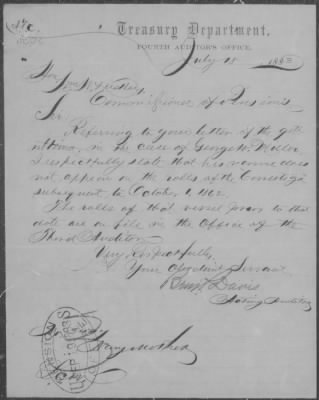 Treasury Department,
FOURTH AUDITOR'S OFFICE,
July 18 1883
Hon.
Commissioner of Pensions
Sir,
Referring to your letter of the 9th
in the case of George W.
I respectfully state that his name does
not appear on the rolls of the Conestoga
subsequent to October 1, 1862.
The rolls of that vessel prior to that
date are on file in the Office of the
Third Auditor.
Very Respectfully,
Your Obedient Servant
Davis
Acting Auditor